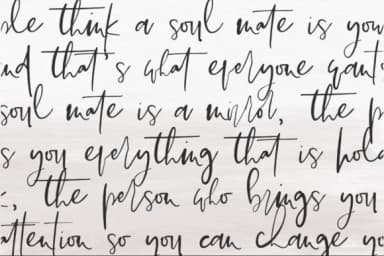 ple think a soul mate is you
nd that's what everyone want
soul mate is a mirror, the p
s you everything that is hold
k, the person who brings you
attention so you can change yo